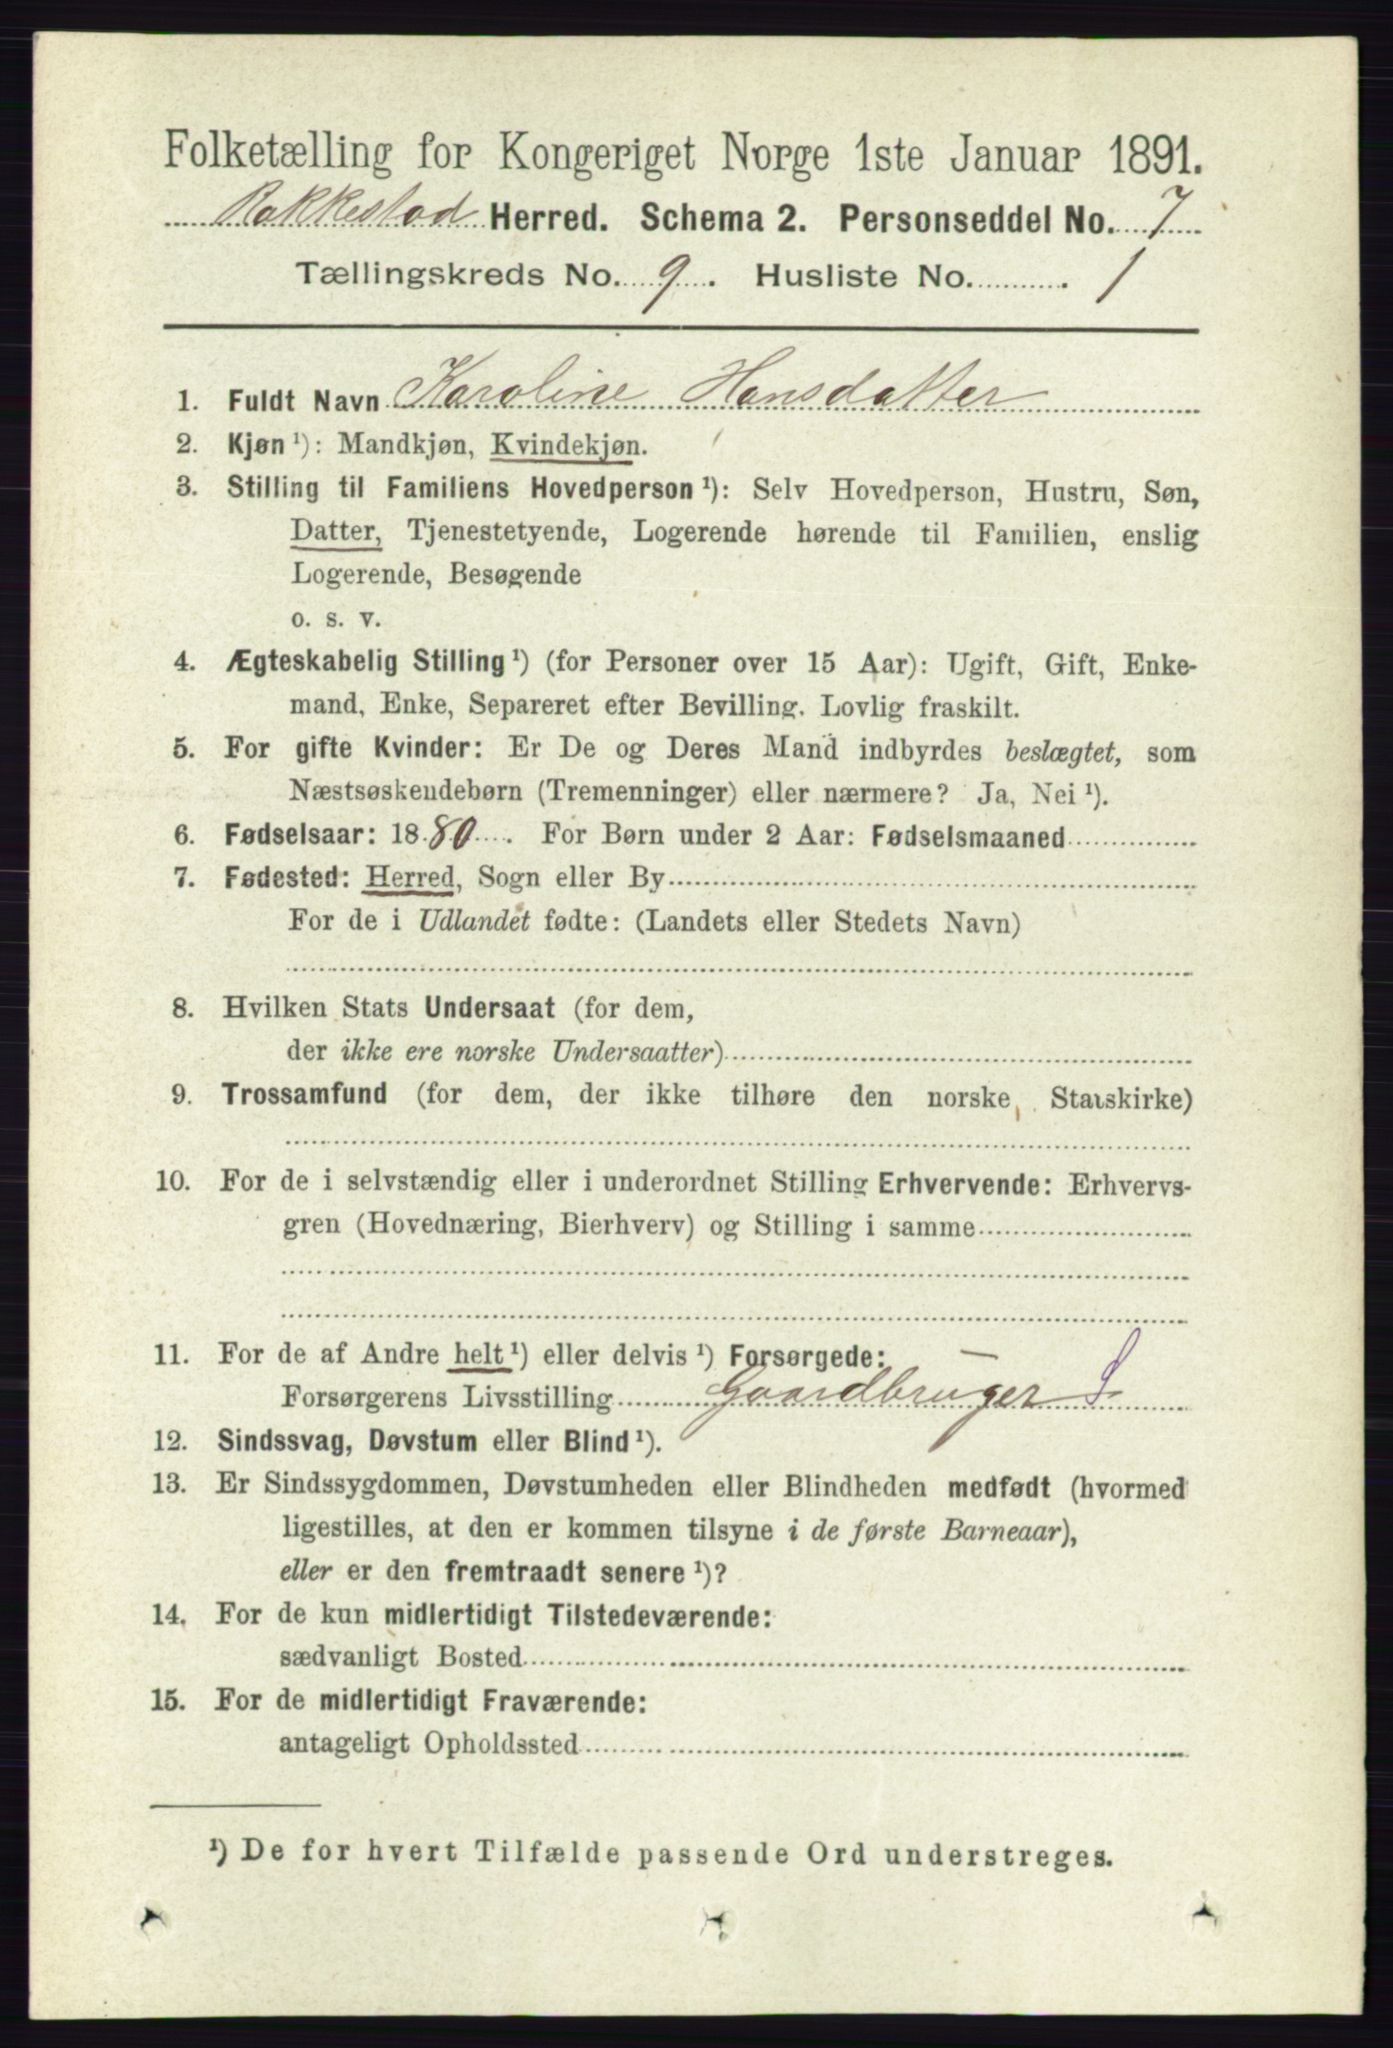 Folketælling for Kongeriget Norge 1ste Januar 1891.
Rakkestad Herred. Schema 2. Personseddel No. 7
Tællingskreds No. 9. Husliste No. 1
1. Fuldt Navn Karoline Hansdatter
2. Kjøn ¹): Mandkjøn, Kvindekjøn.
3. Stilling til Familiens Hovedperson ¹): Selv Hovedperson, Hustru, Søn,
Datter, Tjenestetyende, Logerende hørende til Familien, enslig
Logerende, Besøgende
o. s. v.
4. Ægteskabelig Stilling ¹) (for Personer over 15 Aar): Ugift, Gift, Enke-
mand, Enke, Separeret efter Bevilling. Lovlig fraskilt.
5. For gifte Kvinder: Er De og Deres Mand indbyrdes beslægtet, som
Næstsøskendebørn (Tremenninger) eller nærmere? Ja, Nei ¹).
6. Fødselsaar: 1880. For Børn under 2 Aar: Fødselsmaaned
7. Fødested: Herred, Sogn eller By
For de i Udlandet fødte: (Landets eller Stedets Navn)
8. Hvilken Stats Undersaat (for dem,
der ikke ere norske Undersaatter)
9. Trossamfund (for dem, der ikke tilhøre den norske Statskirke)
10. For de i selvstændig eller i underordnet Stilling Erhvervende: Erhvervs-
gren (Hovednæring, Bierhverv) og Stilling i samme
11. For de af Andre helt ¹) eller delvis ¹) Forsørgede:
Forsørgerens Livsstilling Gaardbruger S
12. Sindssvag, Døvstum eller Blind ¹).
13. Er Sindssygdommen, Døvstumheden eller Blindheden medfødt (hvormed
ligestilles, at den er kommen tilsyne i de første Barneaar),
eller er den fremtraadt senere ¹)?
14. For de kun midlertidigt Tilstedeværende:
sædvanligt Bosted
15. For de midlertidigt Fraværende:
antageligt Opholdssted
¹) De for hvert Tilfælde passende Ord understreges.